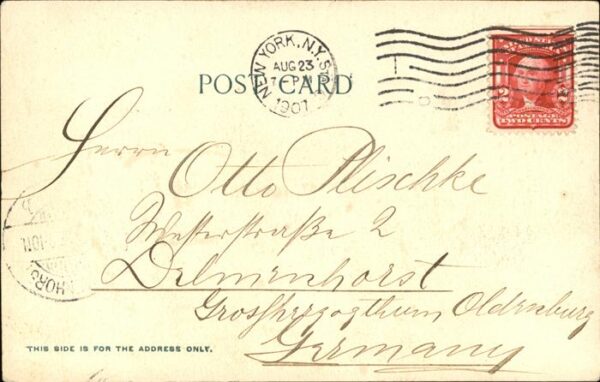 NEW YORK, N.Y. STA
AUG 23
7 PM
1907
POST CARD
POSTAGE
TWO CENTS
2
2
Herrn
Otto Plischke
Westerstraße 2
Delmenhorst
Grossherzogthum Oldenburg
Germany
HORST
THIS SIDE IS FOR THE ADDRESS ONLY.